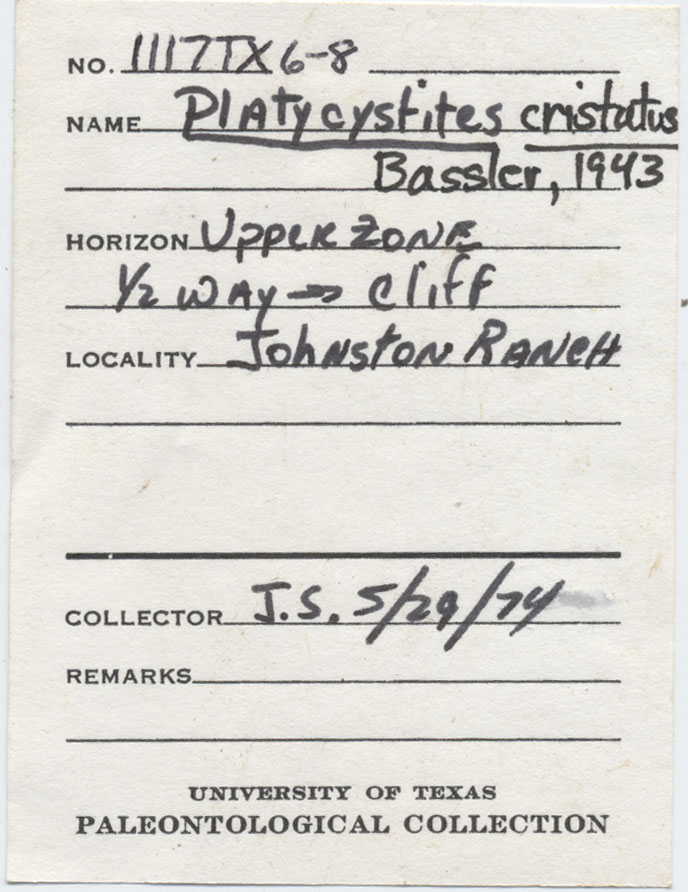 NO. 1117TX6-8
NAME Platycystites cristatus
Bassler, 1943
HORIZON Upper Zone
1/2 way → Cliff
LOCALITY Johnston Ranch
COLLECTOR J.S. 5/29/74
REMARKS
UNIVERSITY OF TEXAS
PALEONTOLOGICAL COLLECTION